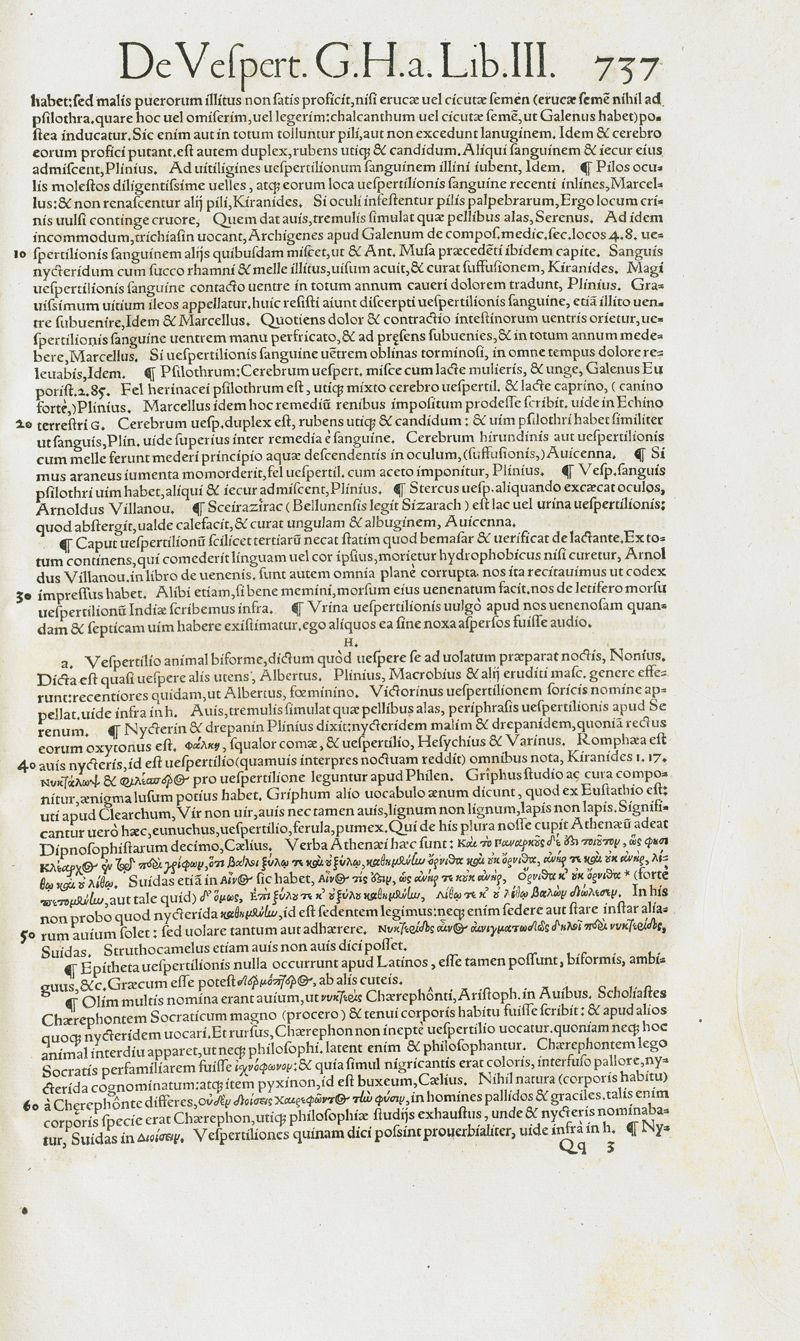 De Veſpert. G.H.a. Lib.III. 737
habet: ſed malis puerorum illitus non ſatis proficit, niſi erucæ uel cicutæ ſemen (erucæ ſemẽ nihil ad
pſilothra. quare hoc uel omiſerim, uel legerim: chalcanthum uel cicutæ ſemẽ, ut Galenus habet) po⸗
ſtea inducatur. Sic enim aut in totum tolluntur pili, aut non excedunt lanuginem. Idem & cerebro
eorum profici putant. eſt autem duplex, rubens utiqꝫ & candidum. Aliqui ſanguinem & iecur eius
admiſcent, Plinius. Ad uitiligines ueſpertilionum ſanguinem illini iubent, Idem. ¶ Pilos ocu⸗
lis moleſtos diligentiſsime uelles, atqꝫ eorum loca ueſpertilionis ſanguine recenti inlines, Marcel⸗
lus: & non renaſcentur alij pili, Kiranides. Si oculi infeſtentur pilis palpebrarum, Ergo locum cri⸗
nis uulſi continge cruore, Quem dat auis, tremulis ſimulat quæ pellibus alas, Serenus. Ad idem
incommodum, trichiaſin uocant, Archigenes apud Galenum de compoſ. medic. ſec. locos 4.8. ue⸗
10 ſpertilionis ſanguinem alijs quibuſdam miſcet, ut & Ant. Muſa præcedẽti ibidem capite. Sanguis
nycteridum cum ſucco rhamni & melle illitus, uiſum acuit, & curat ſuffuſionem, Kiranides. Magi
ueſpertilionis ſanguine contacto uentre in totum annum caueri dolorem tradunt, Plinius. Gra⸗
uiſsimum uitium ileos appellatur. huic reſiſti aiunt diſcerpti ueſpertilionis ſanguine, etiã illito uen⸗
tre ſubuenire, Idem & Marcellus. Quotiens dolor & contractio inteſtinorum uentris orietur, ue⸗
ſpertilionis ſanguine uentrem manu perfricato, & ad pręſens ſubuenies, & in totum annum mede⸗
bere, Marcellus. Si ueſpertilionis ſanguine uẽtrem oblinas torminoſi, in omne tempus dolore re⸗
leuabis, Idem. ¶ Pſilothrum: Cerebrum ueſpert. miſce cum lacte mulieris, & unge, Galenus Eu
poriſt. 2.85. Fel herinacei pſilothrum eſt, utiqꝫ mixto cerebro ueſpertil. & lacte caprino, (canino
fortè,) Plinius. Marcellus idem hoc remediũ renibus impoſitum prodeſſe ſcribit. uide in Echino
20 terreſtri G. Cerebrum ueſp. duplex eſt, rubens utiqꝫ & candidum: & uim pſilothri habet ſimiliter
ut ſanguis, Plin. uide ſuperius inter remedia è ſanguine. Cerebrum hirundinis aut ueſpertilionis
cum melle ferunt mederi principio aquæ deſcendentis in oculum, (ſuffuſionis,) Auicenna. ¶ Si
mus araneus iumenta momorderit, fel ueſpertil. cum aceto imponitur, Plinius. ¶ Veſp. ſanguis
pſilothri uim habet, aliqui & iecur admiſcent, Plinius. ¶ Stercus ueſp. aliquando excæcat oculos,
Arnoldus Villanou. ¶ Sceirazirac (Bellunenſis legit Sizarach) eſt lac uel urina ueſpertilionis:
quod abſtergit, ualde calefacit, & curat ungulam & albuginem, Auicenna.
¶ Caput ueſpertilionũ ſcilicet tertiarũ necat ſtatim quod bemaſar & uerificat de lactante. Ex to⸗
tum continens, qui comederit linguam uel cor ipſius, morietur hydrophobicus niſi curetur, Arnol
dus Villanou. in libro de uenenis. ſunt autem omnia planè corrupta. nos ita recitauimus ut codex
30 impreſſus habet. Alibi etiam, ſi bene memini, morſum eius uenenatum facit. nos de letifero morſu
ueſpertilionũ Indiæ ſcribemus infra. ¶ Vrina ueſpertilionis uulgò apud nos uenenoſam quan⸗
dam & ſepticam uim habere exiſtimatur. ego aliquos ea ſine noxa aſperſos fuiſſe audio.
H.
a. Veſpertilio animal biforme, dictum quòd ueſpere ſe ad uolatum præparat noctis, Nonius.
Dicta eſt quaſi ueſpere alis utens, Albertus. Plinius, Macrobius & alij eruditi maſc. genere effe⸗
runt: recentiores quidam, ut Albertus, fœminino. Victorinus ueſpertilionem ſoricis nomine ap⸗
pellat. uide infra in h. Auis, tremulis ſimulat quæ pellibus alas, periphraſis ueſpertilionis apud Se
renum. ¶ Nycterin & drepanin Plinius dixit: nycteridem malim & drepanidem, quoniã rectus
eorum oxytonus eſt. φάλκη, ſqualor comæ, & ueſpertilio, Heſychius & Varinus. Romphæa eſt
40 auis nycteris, id eſt ueſpertilio (quamuis interpres noctuam reddit) omnibus nota, Kiranides 1.17.
νυκτάλωψ & pro ueſpertilione leguntur apud Philen. Griphus ſtudio ac cura compo⸗
nitur, ænigma luſum potius habet. Griphum alio uocabulo ænum dicunt, quod ex Euſtathio eſt:
uti apud Clearchum, Vir non uir, auis nec tamen auis, lignum non lignum, lapis non lapis. Signifi⸗
cantur uerò hæc, eunuchus, ueſpertilio, ferula, pumex. Qui de his plura noſſe cupit Athenæũ adeat
Dipnoſophiſtarum decimo, Cælius. Verba Athenæi hæc ſunt: Καὶ τὸ πανάρκους δ' ἐστὶ τοιοῦτον, ὥς φησι
Κλέαρχος ἐν τῷ περὶ γρίφων, ὅτι βάλοι ξύλῳ τε καὶ οὐ ξύλῳ, καθημένην ὄρνιθα καὶ οὐκ ὄρνιθα, ἀνήρ τε καὶ οὐκ ἀνήρ, λί⸗
θῳ καὶ οὐ λίθῳ. Suidas etiã in Αἶνος ſic habet, Αἶνός τις ἐστιν, ὡς ἀνήρ τε κοὐκ ἀνήρ, Ὄρνιθα κ' οὐκ ὄρνιθα * (fortè
πετομένην, aut tale quid) δ' ὅμως, Ἐπὶ ξύλου τε κ' οὐ ξύλου καθημένην, Λίθῳ τε κ' οὐ λίθῳ βαλὼν διώλεσεν. In his
non probo quod nycterida καθημένην, id eſt ſedentem legimus: neqꝫ enim ſedere aut ſtare inſtar alia⸗
50 rum auium ſolet: ſed uolare tantum aut adhærere. Νυκτερίδος αἶνος αἰνιγματωδῶς δηλοῖ περὶ νυκτερίδος,
Suidas. Struthocamelus etiam auis non auis dici poſſet.
¶ Epitheta ueſpertilionis nulla occurrunt apud Latinos, eſſe tamen poſſunt, biformis, ambi⸗
guus, &c. Græcum eſſe poteſt , ab alis cuteis.
¶ Olim multis nomina erant auium, ut νυκτερὶς Chærephônti, Ariſtoph. in Auibus. Scholiaſtes
Chærephontem Socraticum magno (procero) & tenui corporis habitu fuiſſe ſcribit: & apud alios
quoqꝫ nycteridem uocari. Et rurſus, Chærephon non ineptè ueſpertilio uocatur. quoniam neqꝫ hoc
animal interdiu apparet, ut neqꝫ philoſophi. latent enim & philoſophantur. Chærephontem lego
Socratis perfamiliarem fuiſſe ἰσχνόφωνον: & quia ſimul nigricantis erat coloris, interfuſo pallore, ny⸗
cterida cognominatum: atqꝫ item pyxinon, id eſt buxeum, Cælius. Nihil natura (corporis habitu)
60 à Cherephônte differes, οὐδὲν διοίσεις Χαιρεφῶντος τὴν φύσιν, in homines pallidos & graciles. talis enim
corporis ſpecie erat Chærephon, utiqꝫ philoſophiæ ſtudijs exhauſtus, unde & nycteris nominaba⸗
tur, Suidas in Διοίσειν. Veſpertiliones quinam dici poſsint prouerbialiter, uide infrà in h. ¶ Ny⸗
Qq 3